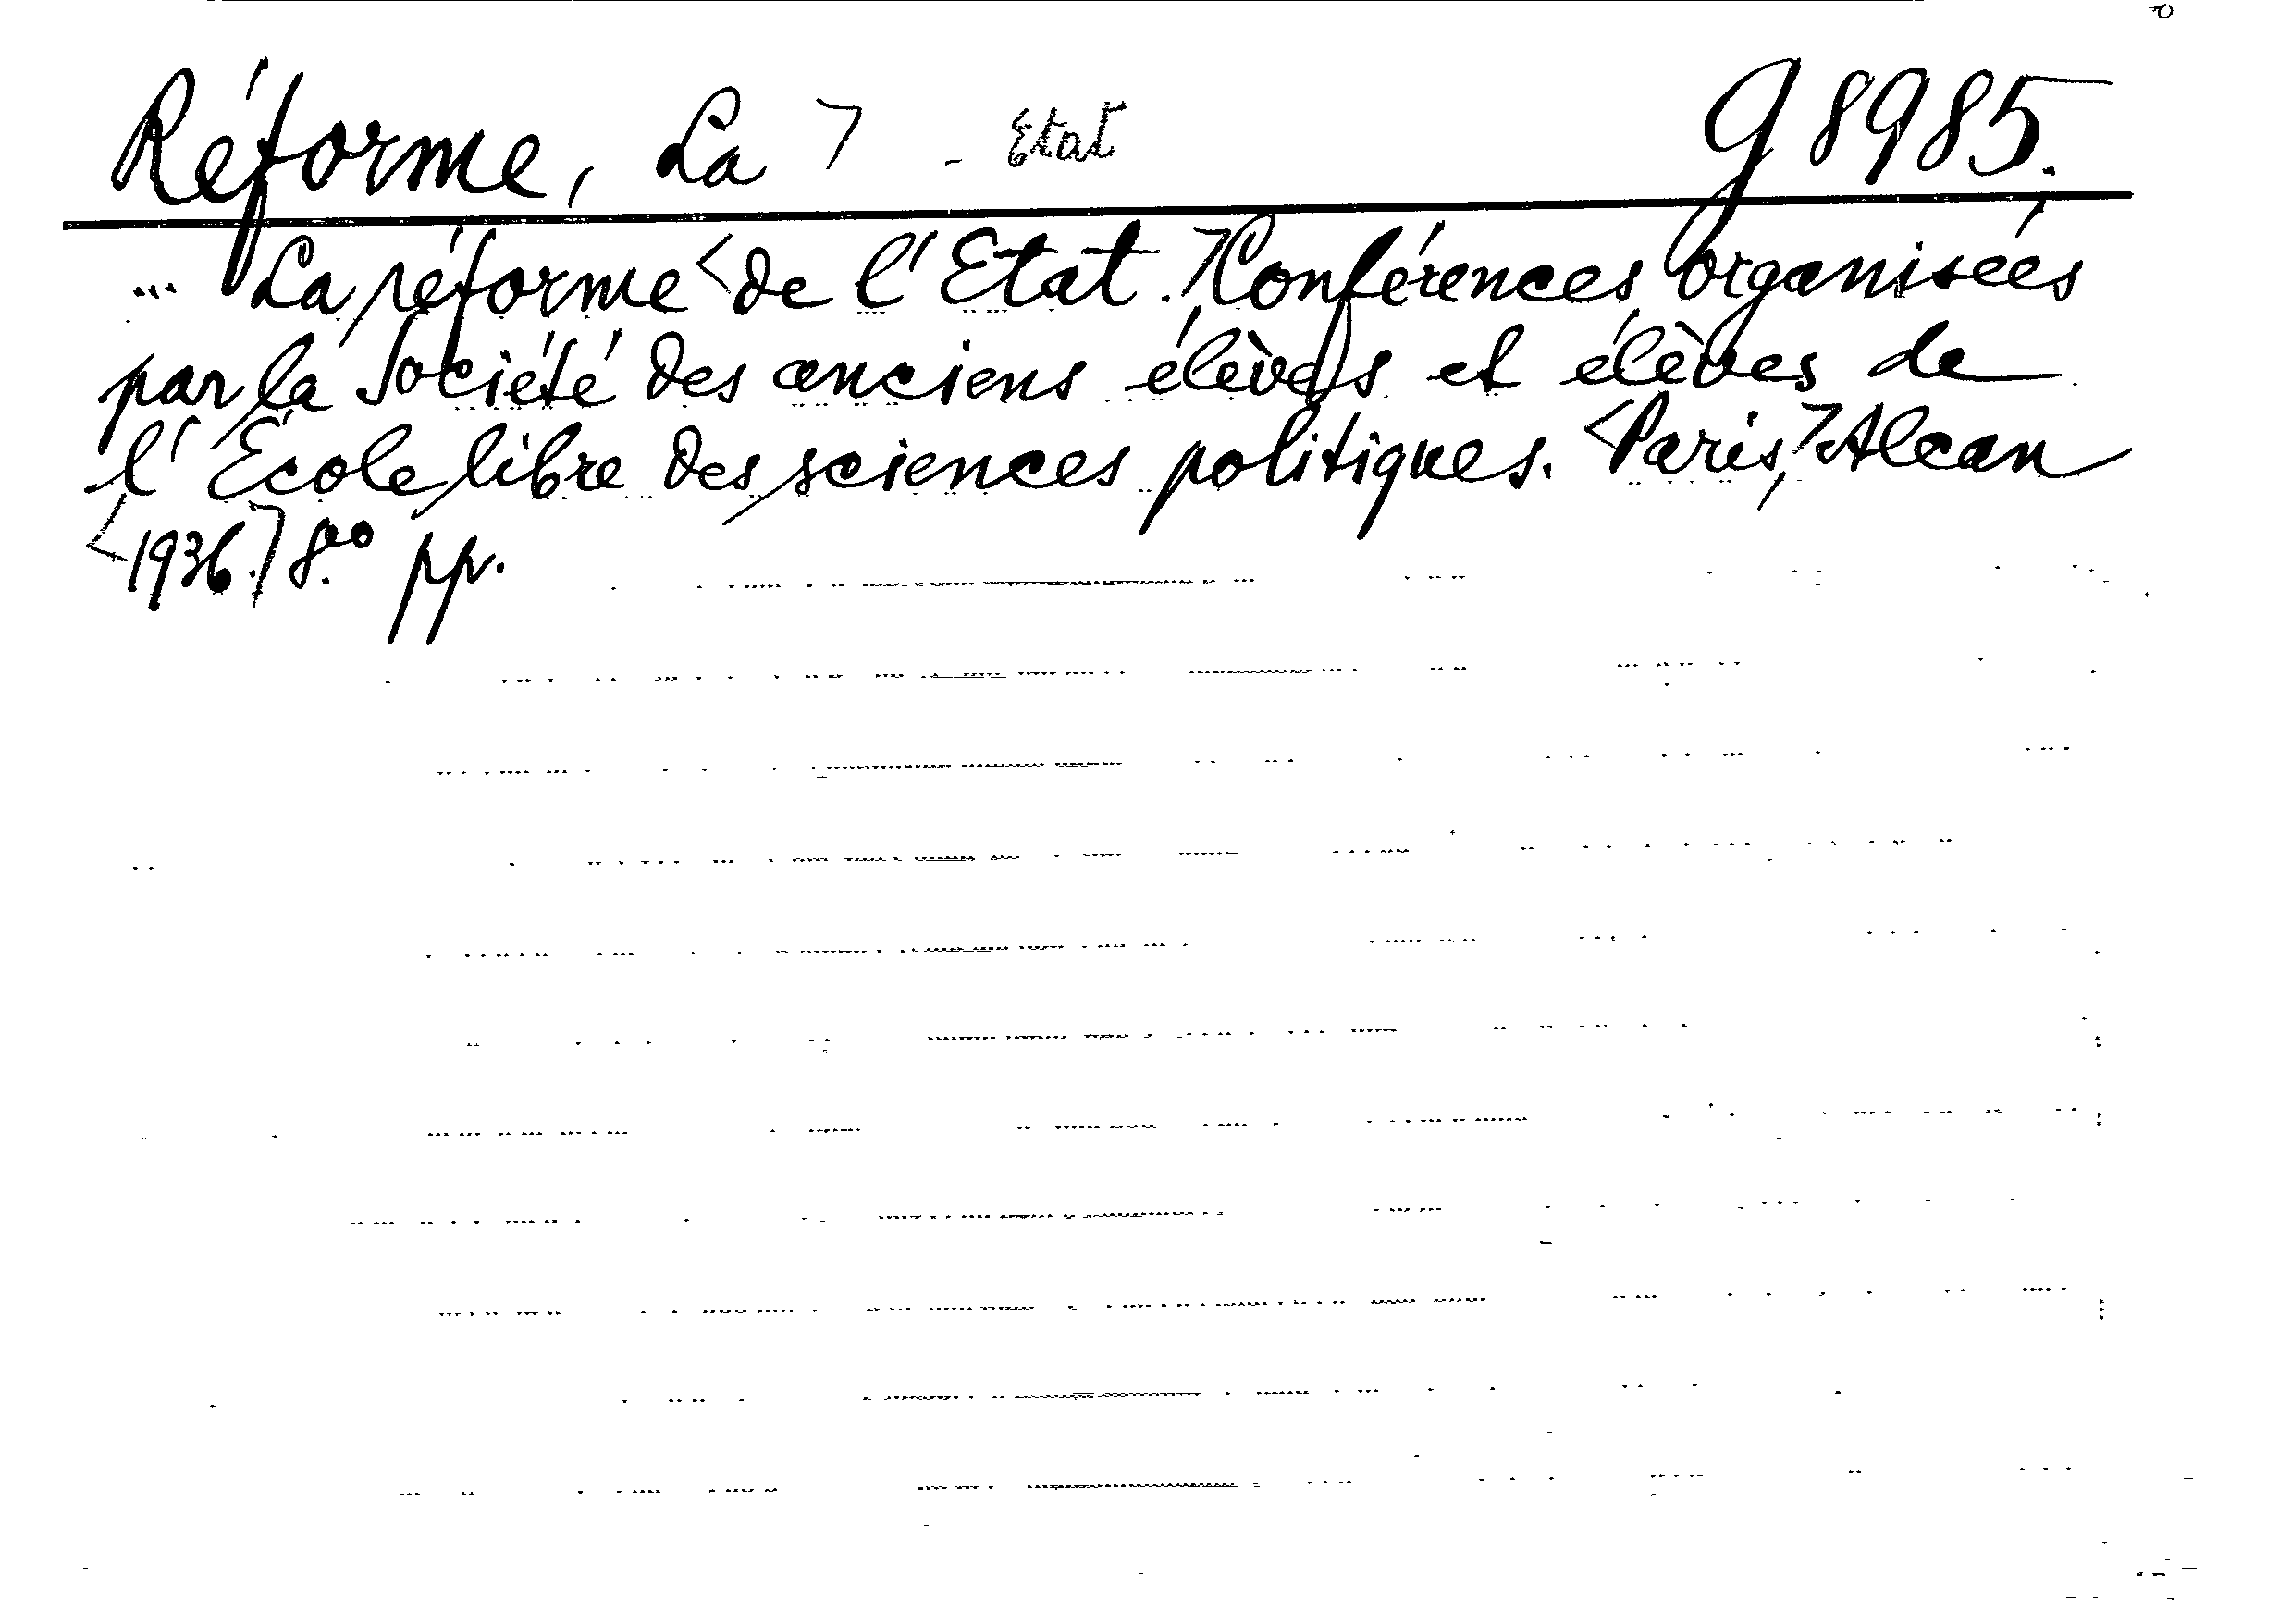 Réforme, La > - Etat g 8985.
... La réforme <de l'Etat.> Conférences organisées
par la Société des anciens élèves et élèves de
l'École libre des sciences politiques. <Paris,> Alcan
<1936.> 8.° pp.